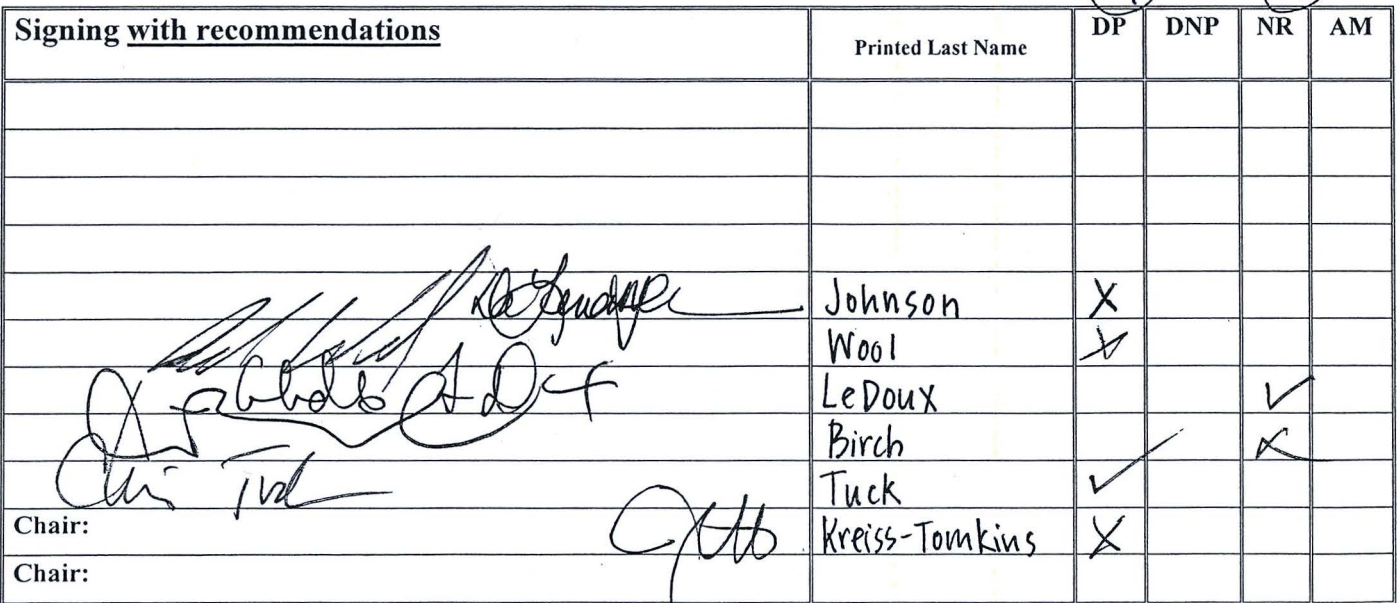 Signing with recommendations Printed Last Name DP DNP NR AM
Johnson X
Wool X
LeDoux ✓
Birch X
Chris Tuck Tuck ✓
Chair: Kreiss-Tomkins X
Chair: